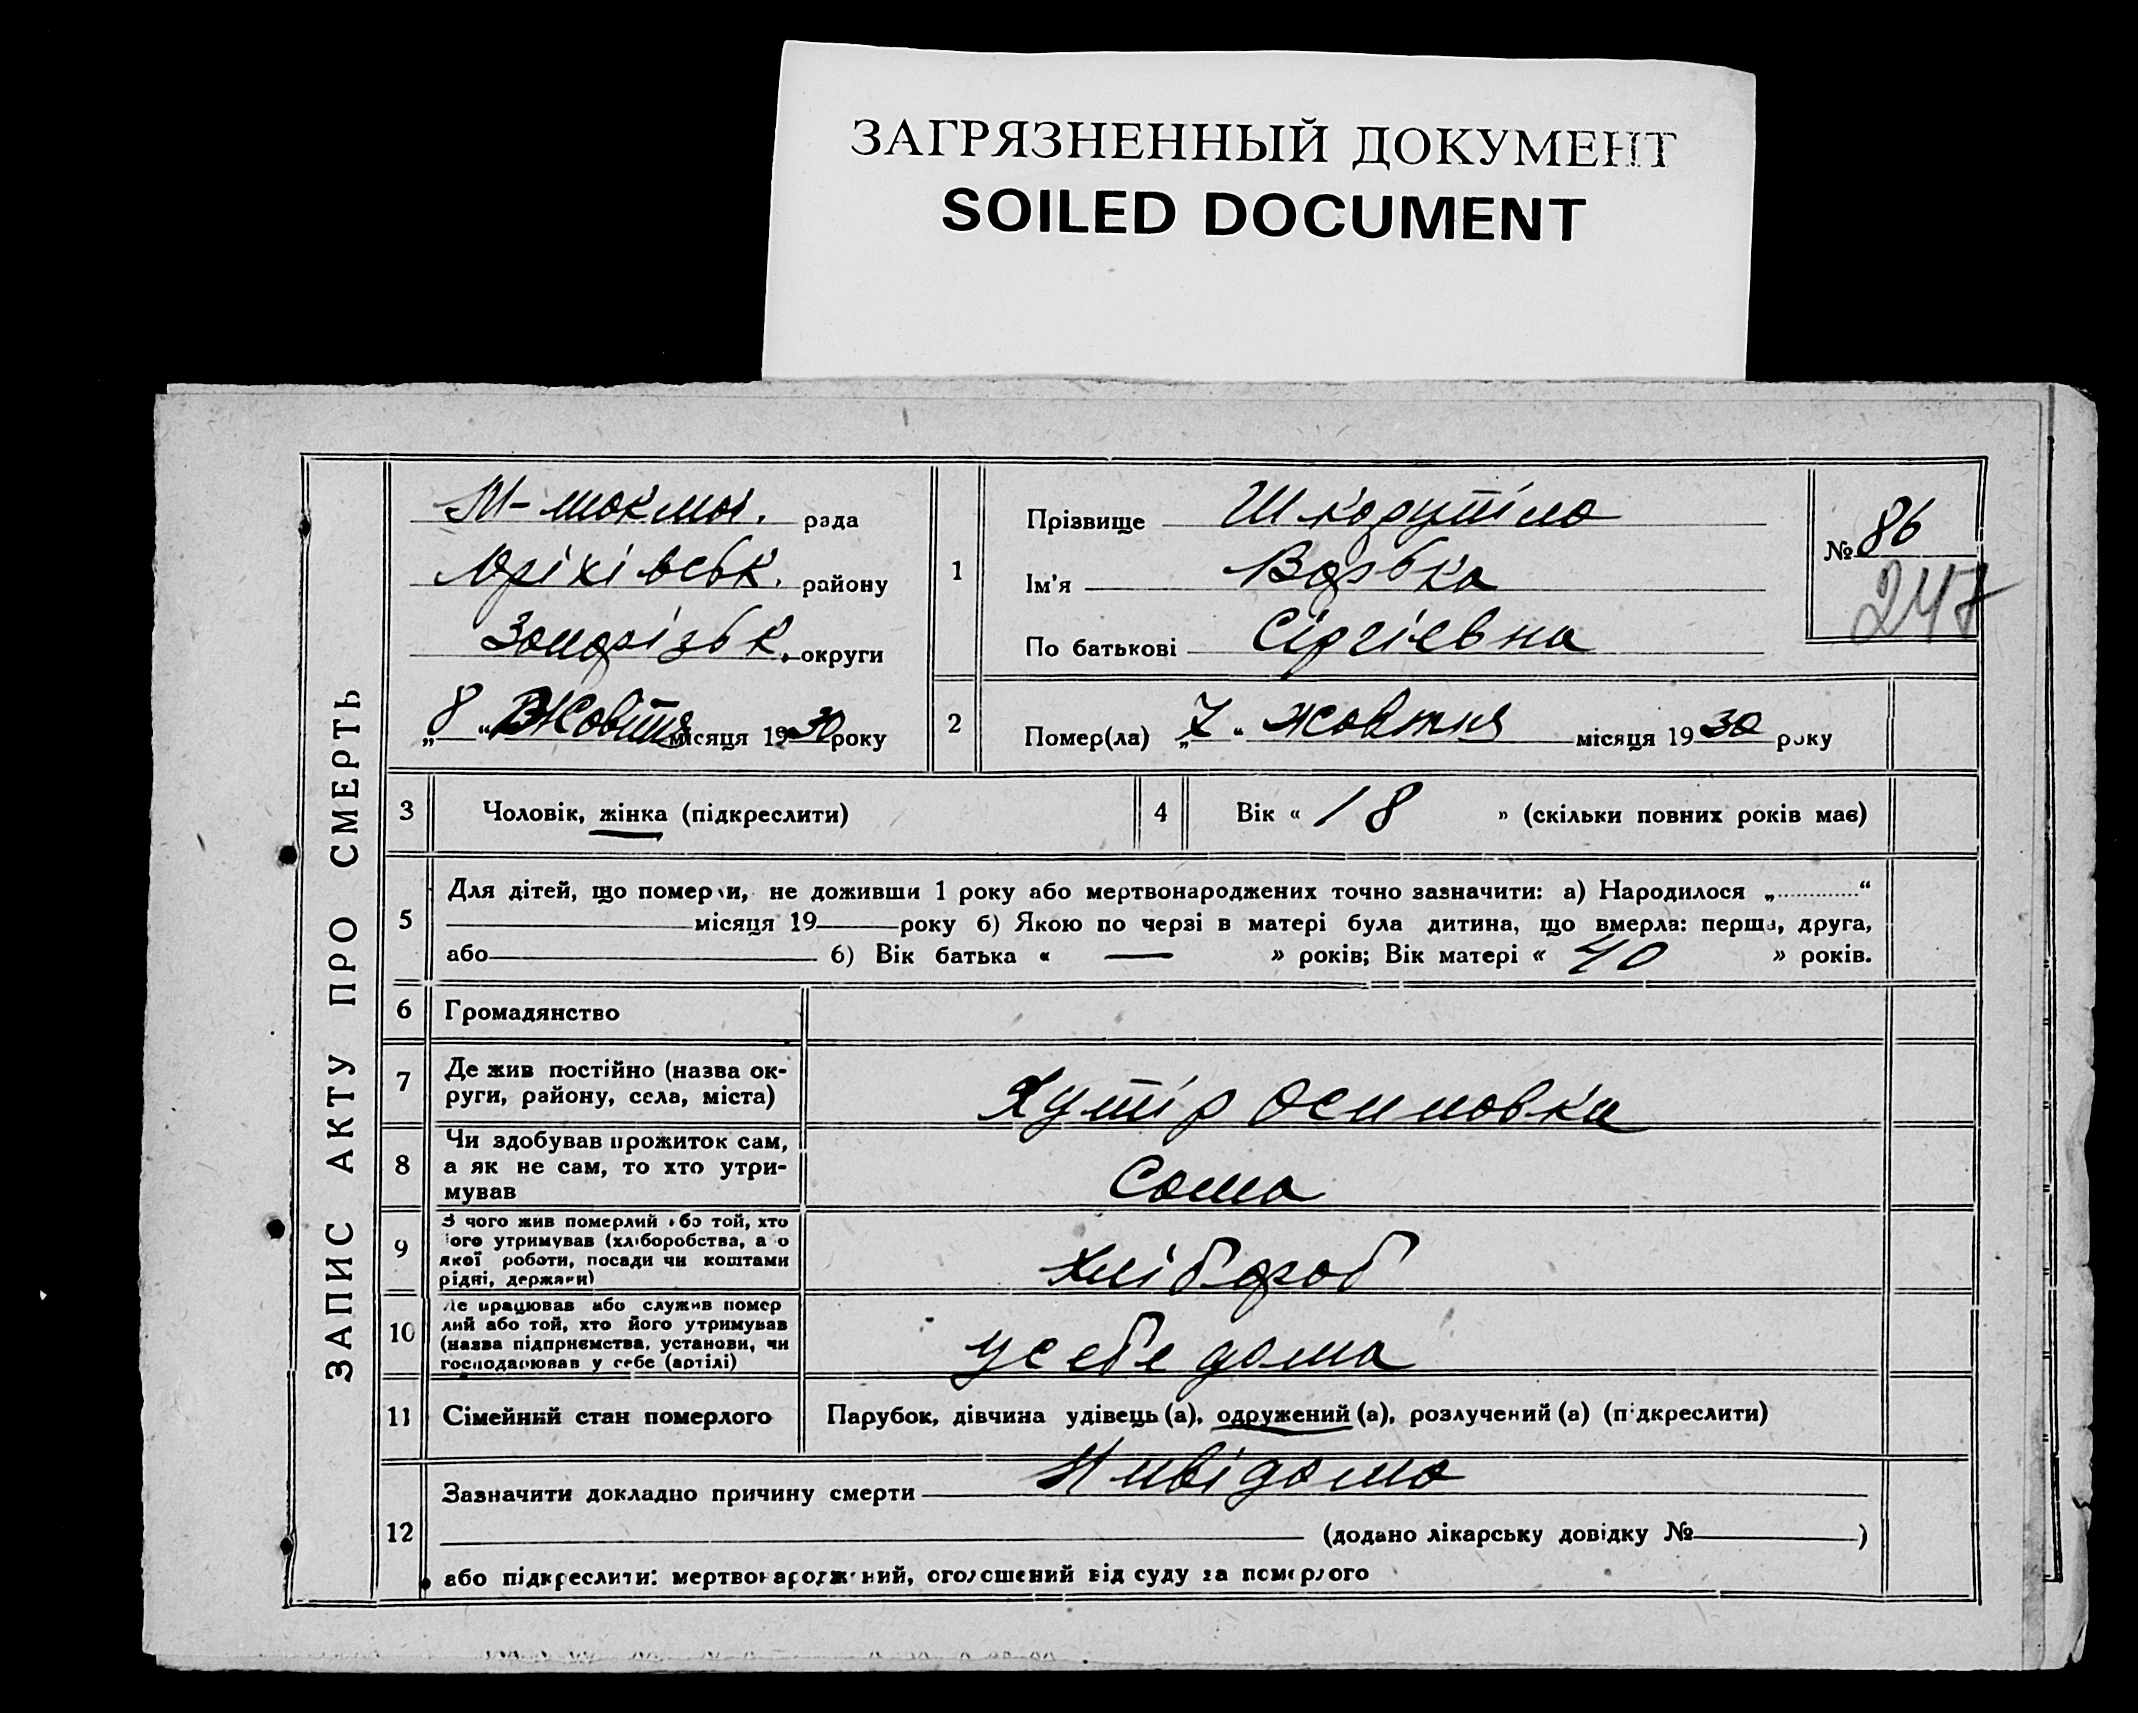 ЗАГРЯЗНЕННЫЙ ДОКУМЕНТ
SOILED DOCUMENT
ЗАПИС АКТУ ПРО СМЕРТЬ
М-токмач. рада
Оріхівськ. району
Запорізьк. округи
„8“ Жовтня місяця 1930 року
1
Прізвище Шкарутіло
Ім'я Варька
По батькові Сіргієвна
№ 86
247
2
Помер(ла) „7“ жовтня місяця 1930 року
3
Чоловік, жінка (підкреслити)
4
Вік « 18 » (скільки повних років має)
5
Для дітей, що померли, не доживши 1 року або мертвонароджених точно зазначити: а) Народилося „ “
місяця 19 року б) Якою по черзі в матері була дитина, що вмерла: перша, друга,
або 6) Вік батька « — » років; Вік матері « 40 » років.
6
Громадянство
7
Де жив постійно (назва ок-
руги, району, села, міста)
Хутір Осиповка
8
Чи здобував прожиток сам,
а як не сам, то хто утри-
мував
Сама
9
З чого жив померлий або той, хто
його утримував (хліборобства, або
якої роботи, посади чи коштами
рідні, держави)
хлібороб
10
Де працював або служив помер
лий або той, хто його утримував
(назва підприємства, установи, чи
господарював у себе (артілі)
у себе дома
11
Сімейний стан померлого
Парубок, дівчина удівець (а), одружений (а), розлучений (а) (підкреслити)
12
Зазначити докладно причину смерти Нивідомо
(додано лікарську довідку № )
або підкреслити: мертвонароджений, оголошений від суду за померлого